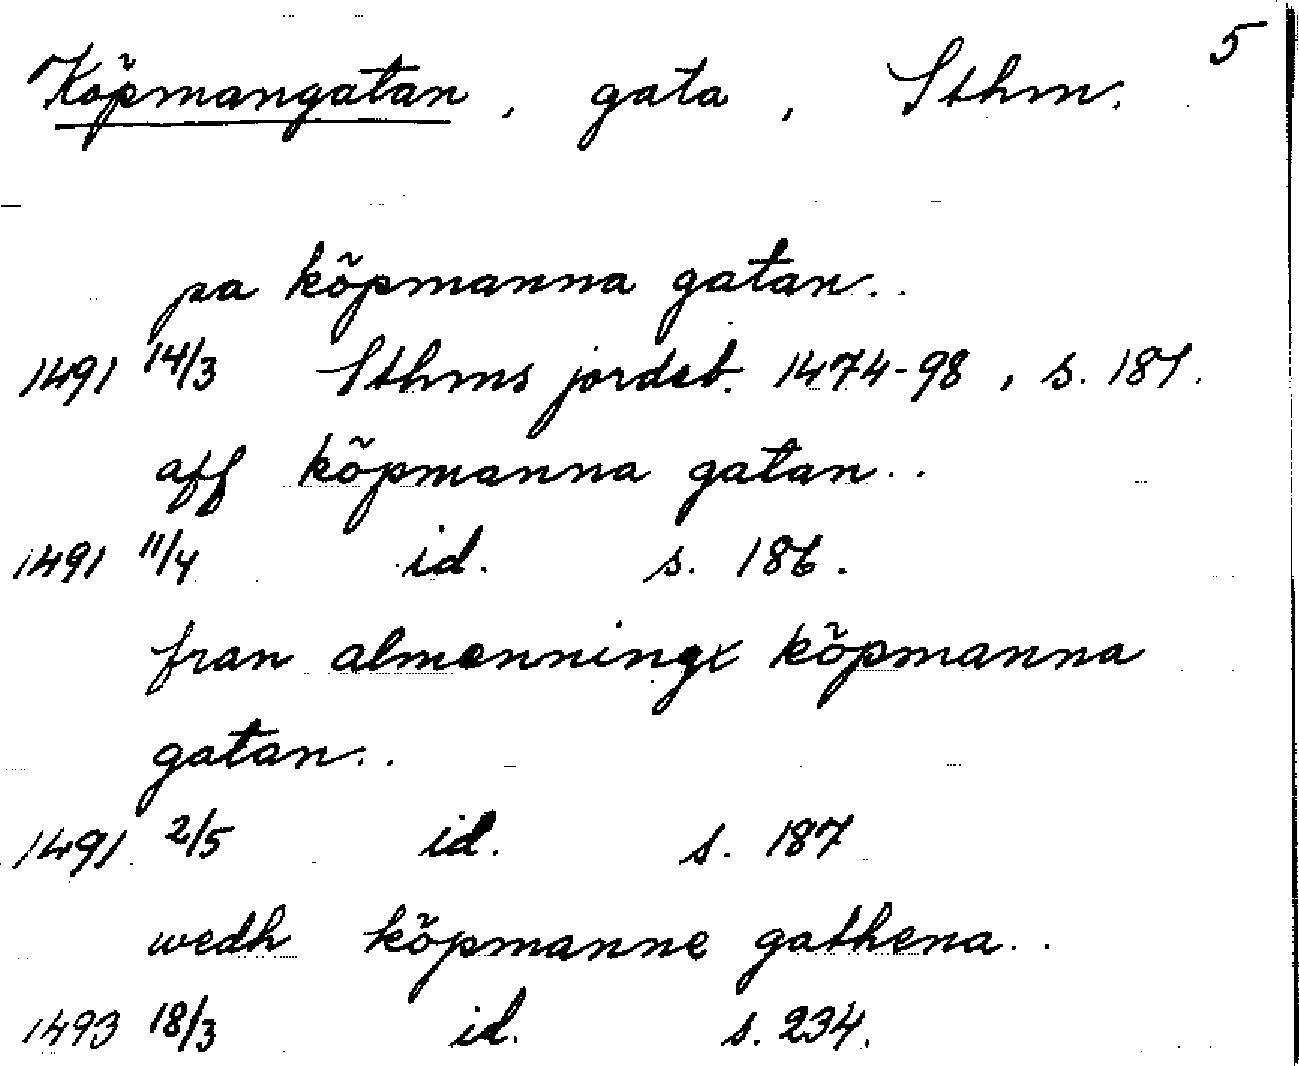 Köpmangatan, gata, Sthm. 5
pa köpmanna gatan..
1491 14/3 Sthms jordeb. 1474-98, s. 181.
aff köpmanna gatan..
1491 11/4 id. s. 186.
fran almenningx köpmanna
gatan..
1491 2/5 id. s. 187
wedh köpmanne gathena..
1493 18/3 id. s. 234.